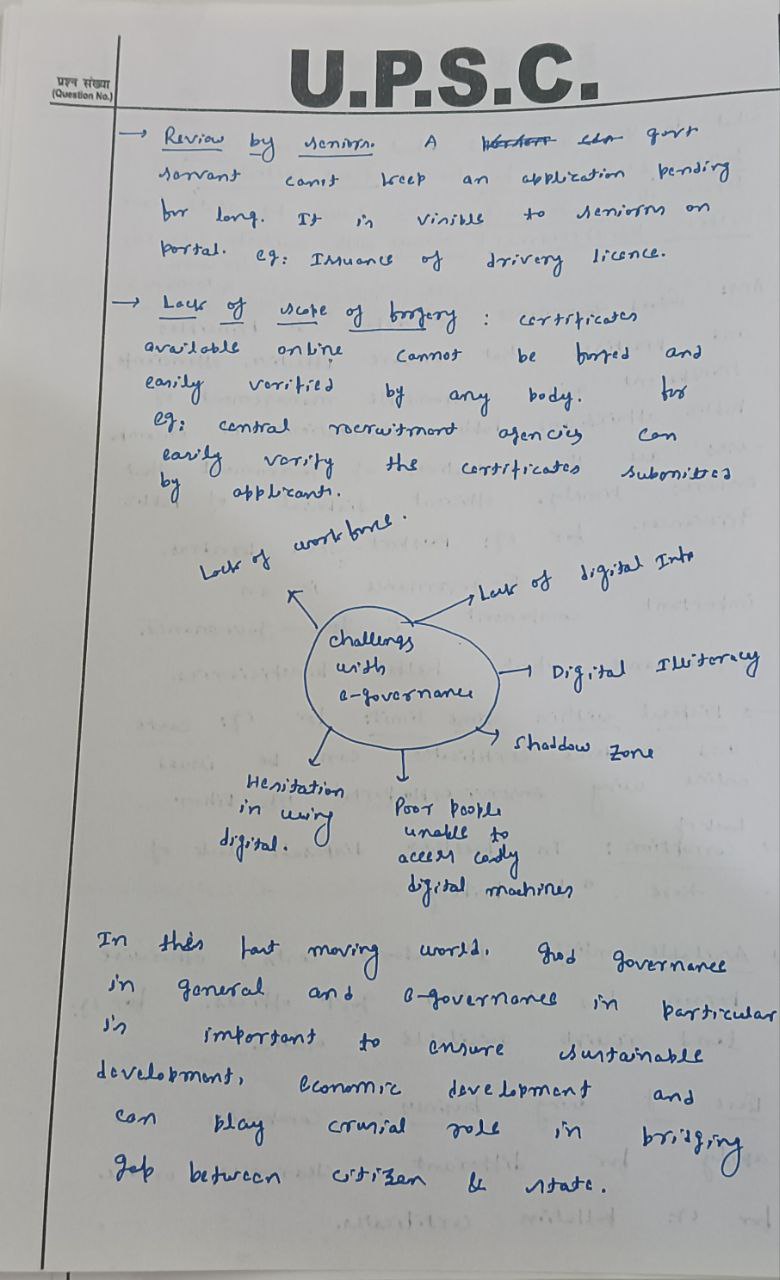 प्रश्न संख्या
(Question No.)
U.P.S.C.
→ Review by seniors. A govt
servant can't keep an application pending
for long. It is visible to seniors on
portal. eg: Issuance of drivery licence.
→ Lack of scope of forgery : certificates
available online cannot be forged and
easily verified by any body. for
eg: central recruitment agencies can
easily verify the certificates submitted
by applicants.
Lack of workforce.
Lack of digital Infra
challenges
with
e-governance
Digital Illiteracy
Shaddow zone
Hesitation
in using
digital.
Poor people
unable to
access costly
digital machines
In this fast moving world, good governance
in general and e-governance in particular
is important to ensure sustainable
development, economic development and
can play crucial role in bridging
gap between citizen & state.